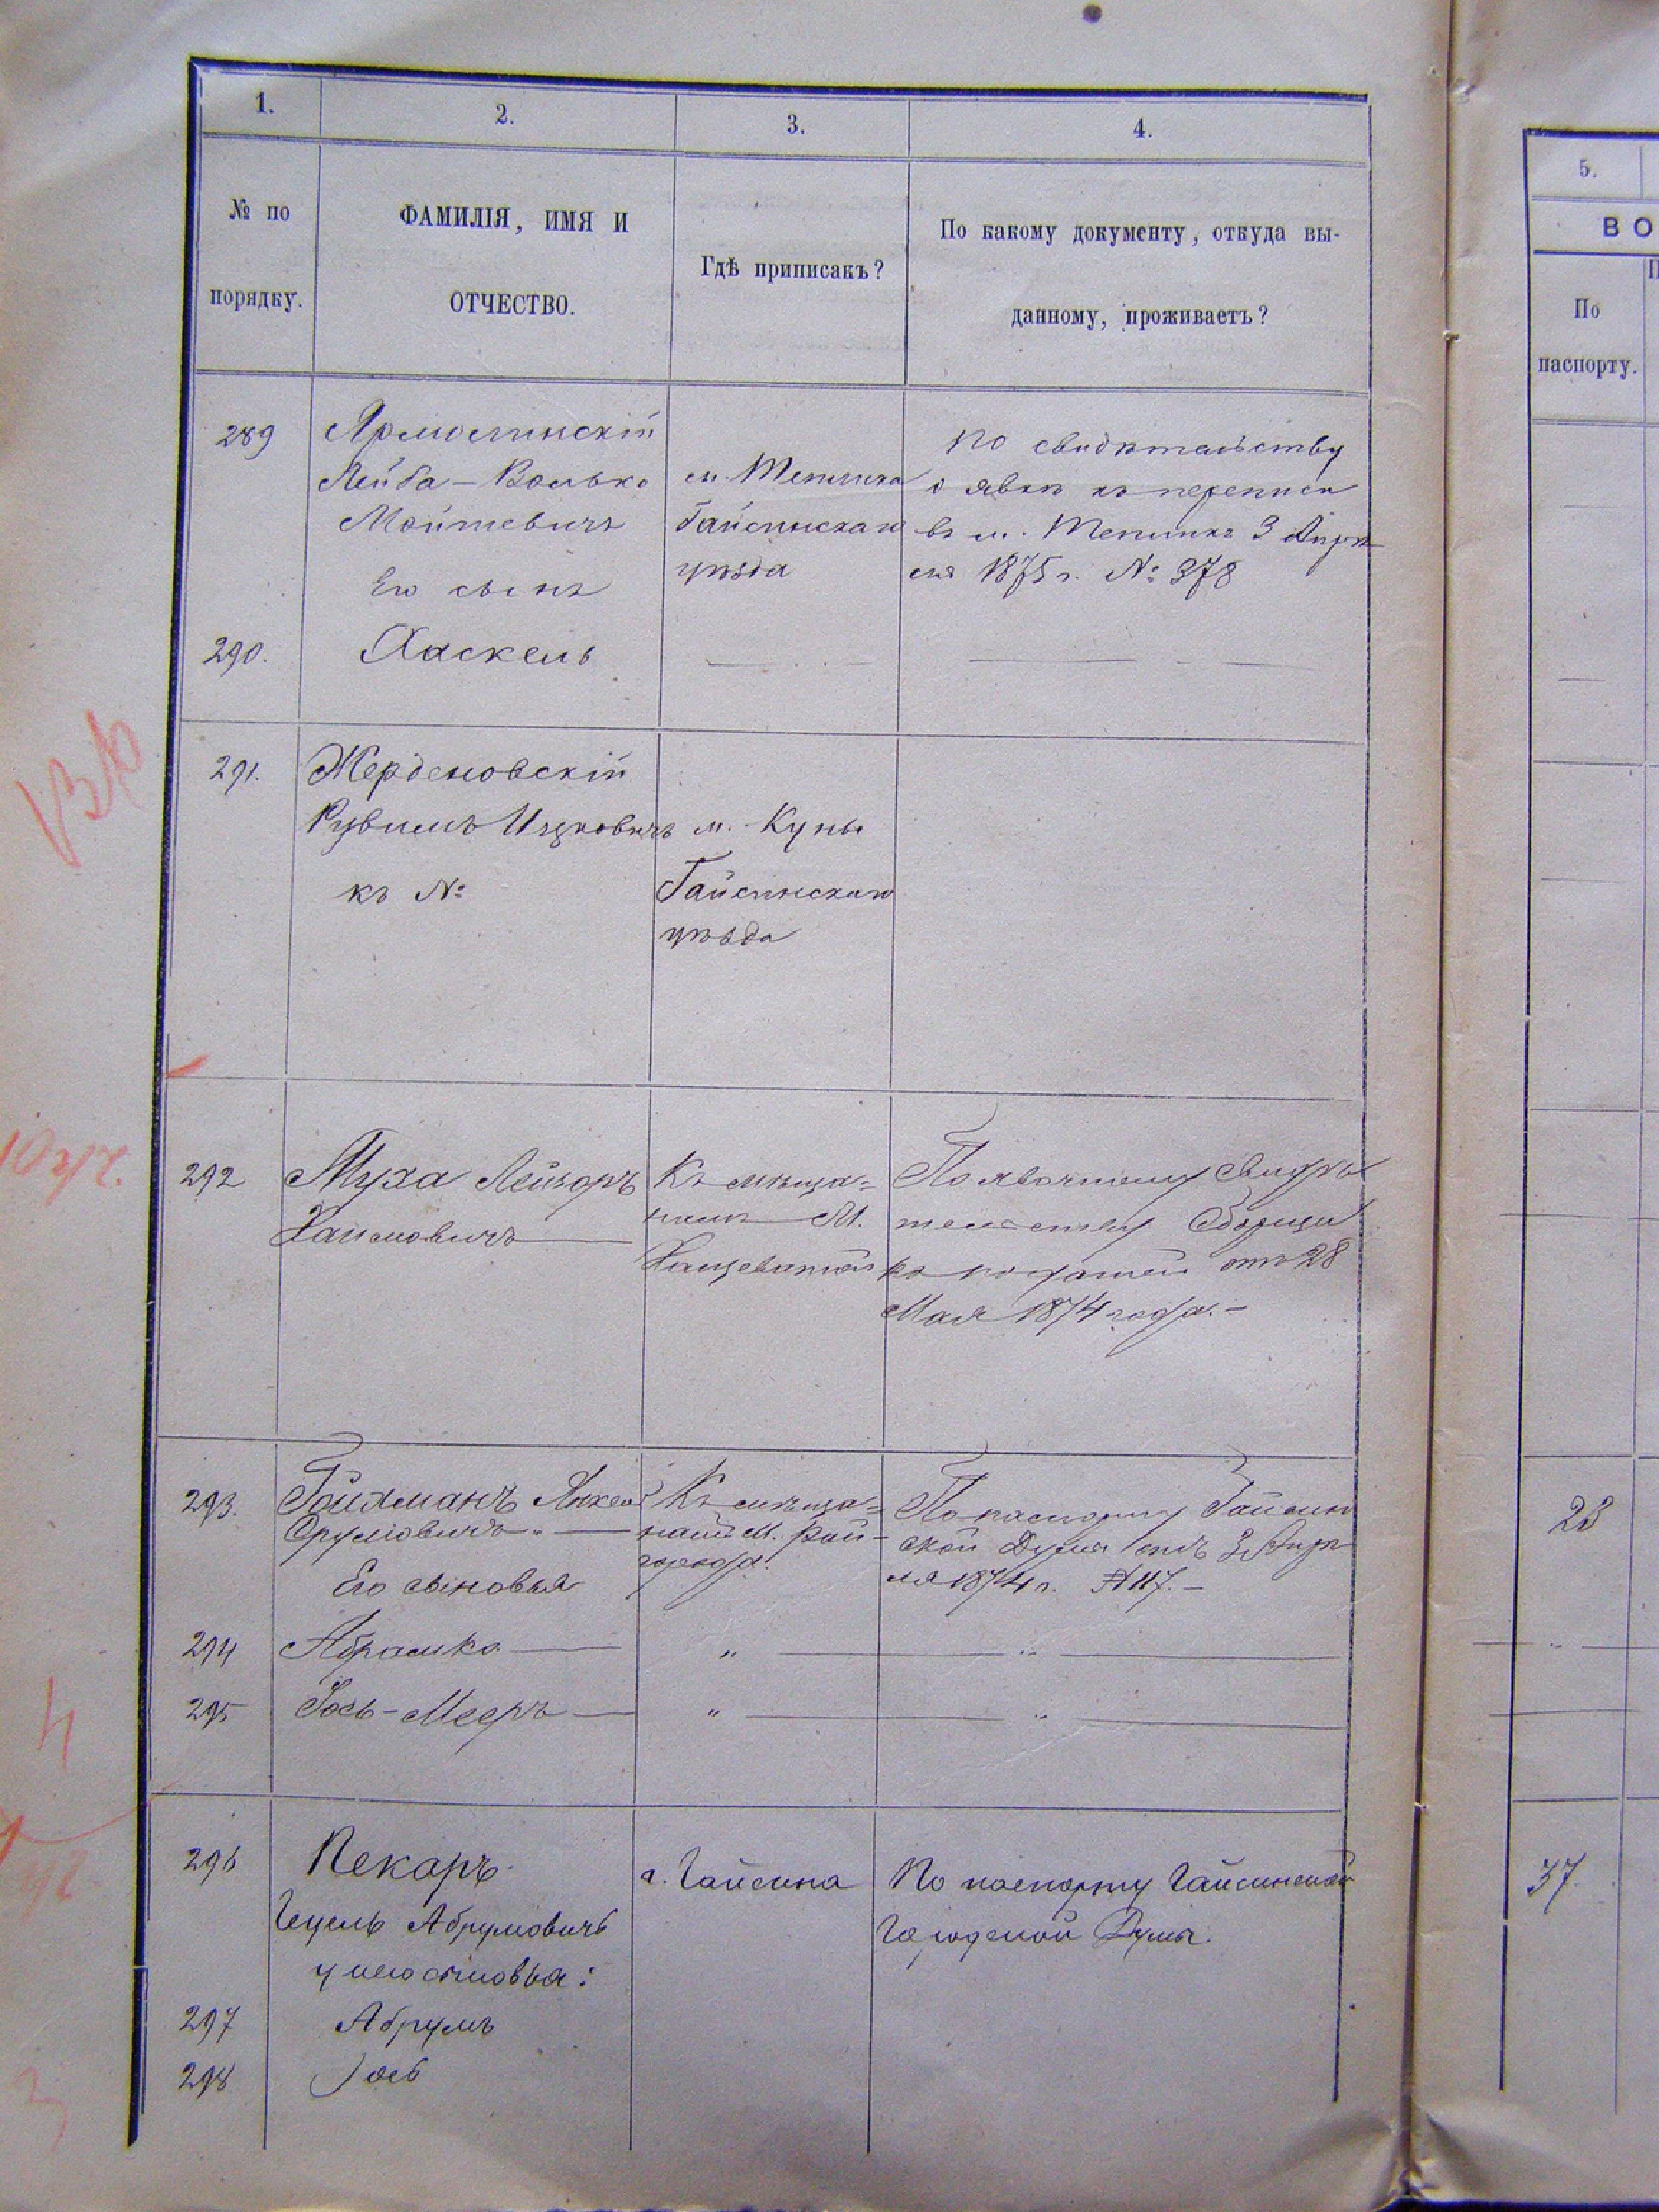 1. 2. 3. 4.
№ по порядку.
ФАМИЛІЯ, ИМЯ И
ОТЧЕСТВО.
Гдѣ приписанъ?
По какому документу, откуда вы-
данному, проживаетъ?
5.
ВО
По
паспорту.
289
Ярмолинскій
Лейба-Волько
Мошкевичъ
м. Теплика
Гайсинскаго
уѣзда
по свидѣтельству
о явкѣ къ переписи
въ м. Тепликѣ 3 Апрѣ
ля 1875 г. № 378
Его сынъ
290. Хаскель
291. Жерденовскій
Рувимъ Ицковичъ
къ №
м. Куны
Гайсинскаго
уѣзда
292 Муха Лейзоръ
Хаимовичъ
Къ мѣща-
намъ М.
Хащеватой
По явочному свидѣ
тельству Сборщи
ка податей отъ 28
Мая 1874 года.-
293. Гойхманъ Янкель
Срулiовичъ
Къ мѣща-
намъ М. Рай-
города.
По паспорту Гайсин
ской Думы отъ 3 Апрѣ
ля 1874 г. № 117.-
23
Его сыновья
294 Абрамко " "
295 Іось-Мееръ " "
296 Пекаръ
Гецель Абрумовичъ
г. Гайсина
По паспорту Гайсинской
Городской Думы.
37.
у него сыновья:
297 Абрумъ
298 Іось